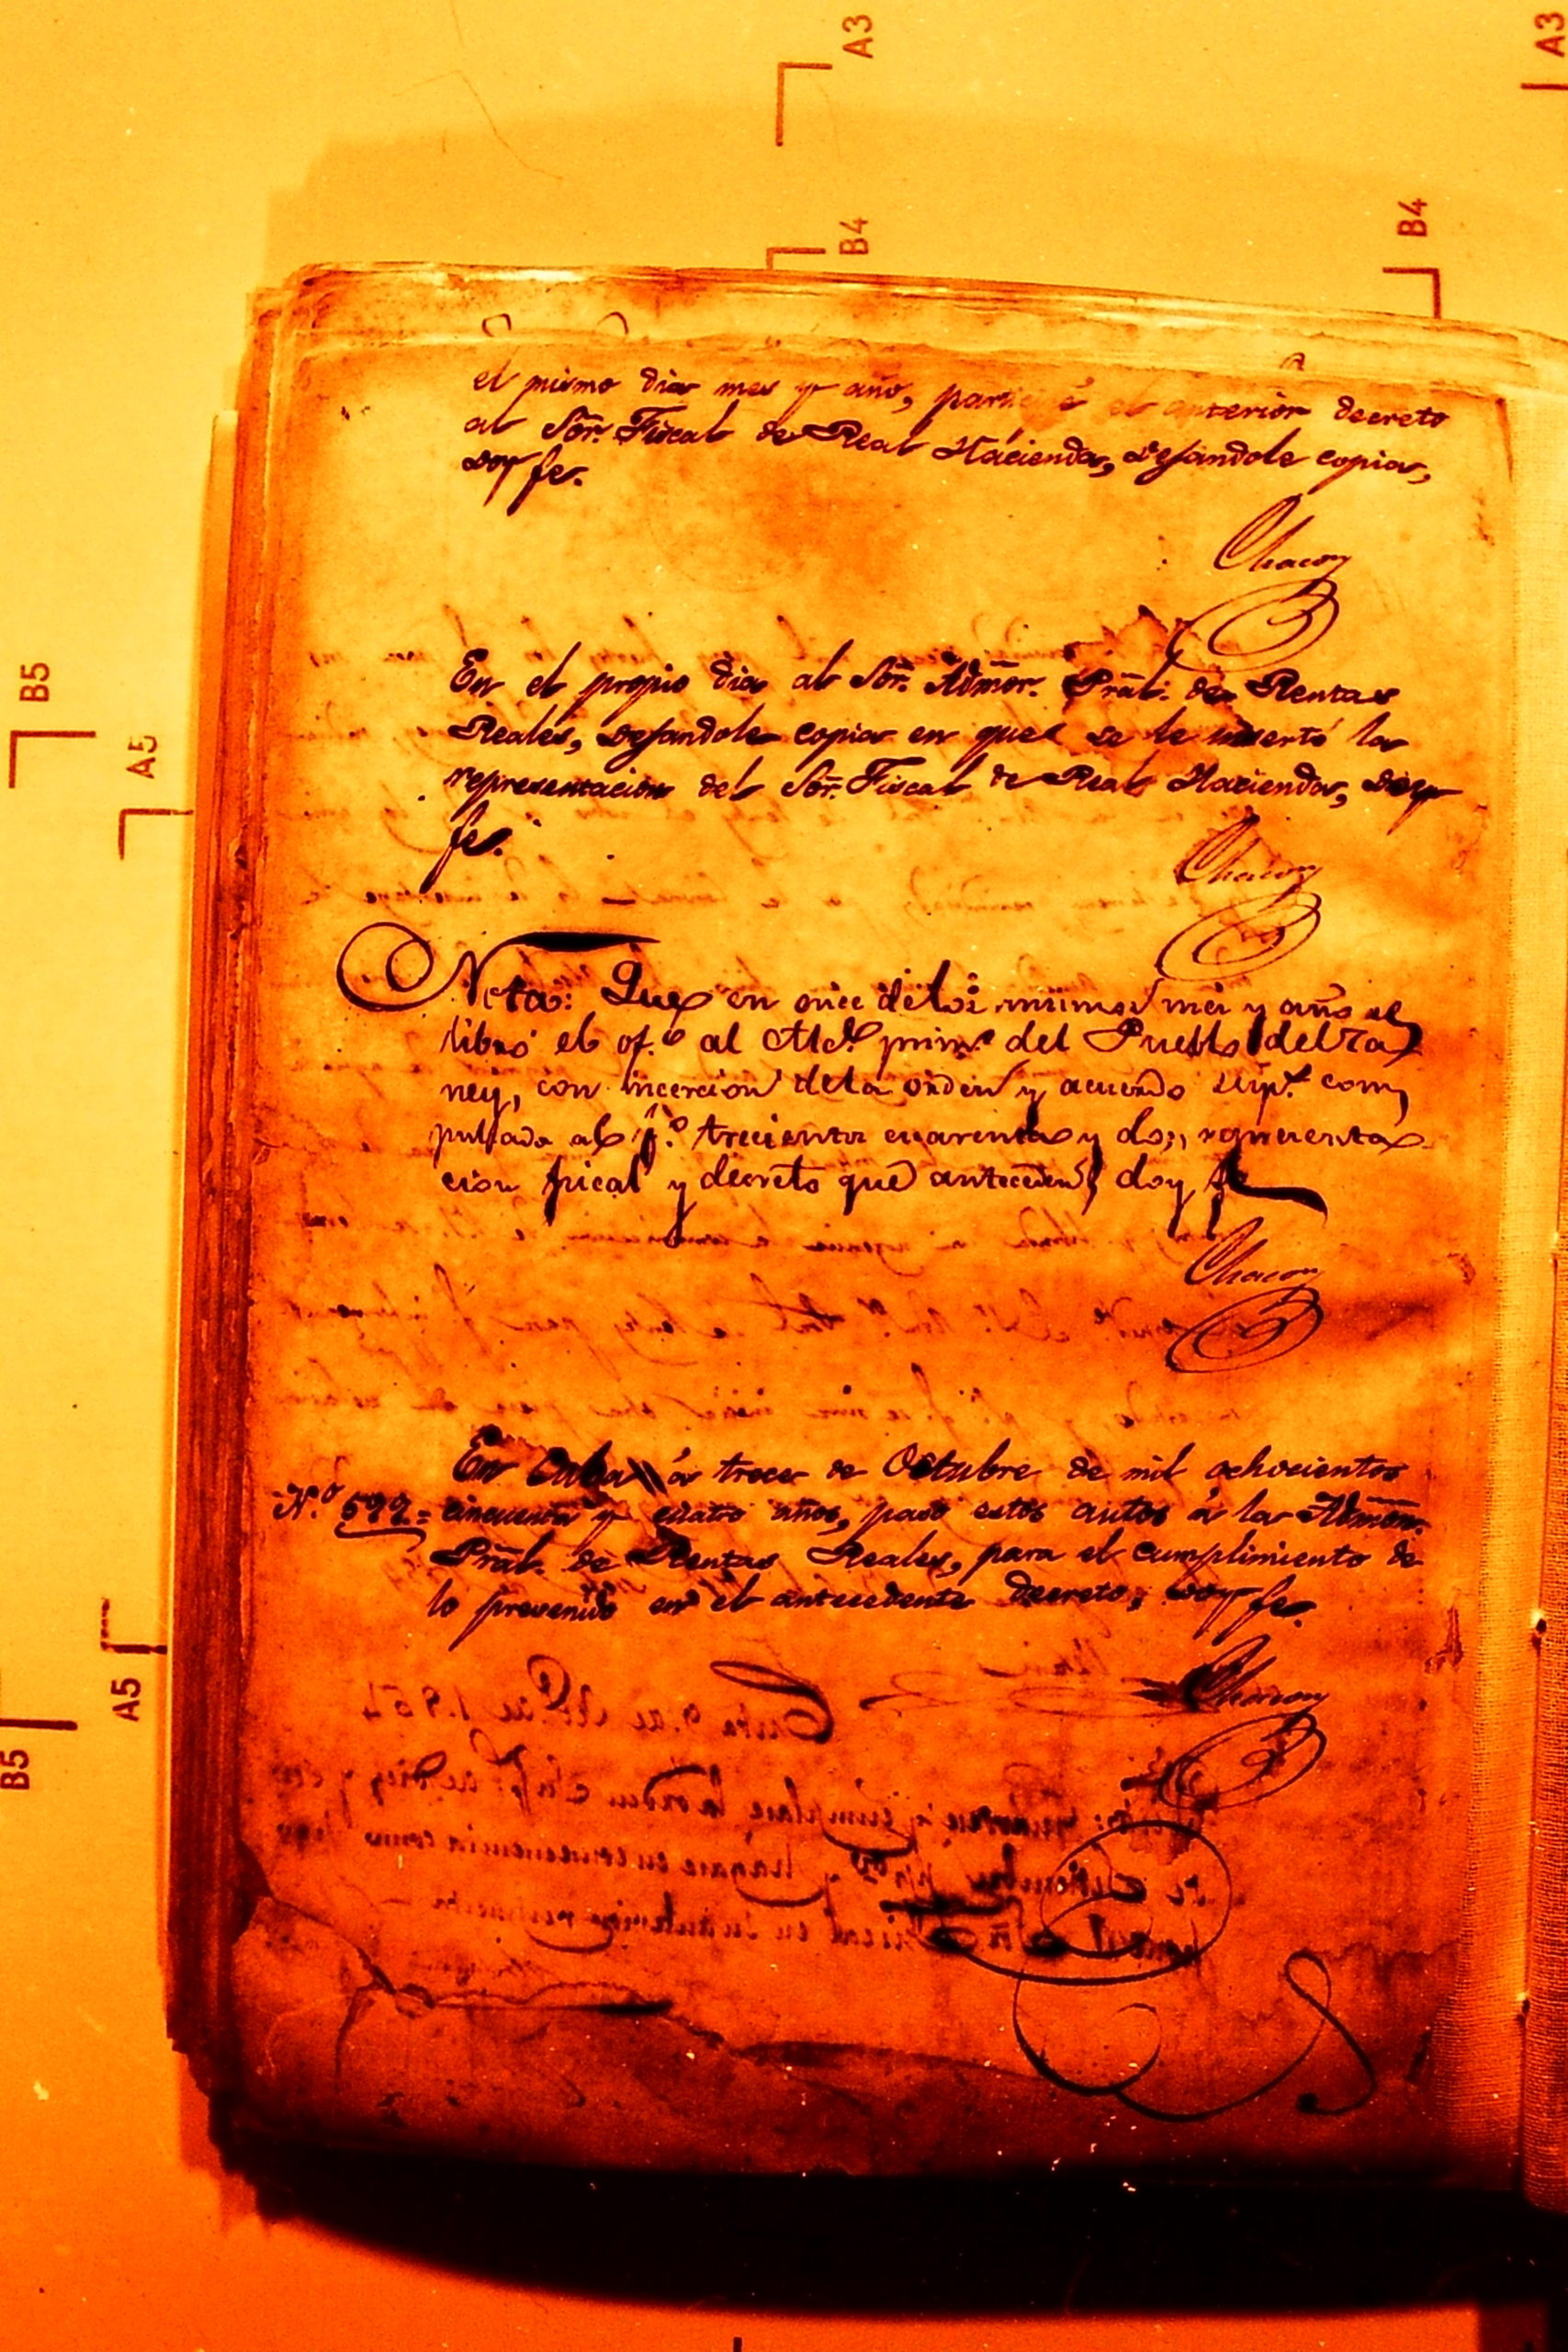 A3
A3
B4
B4
el mismo dia mes y año, participé el anterior decreto
al Sōr. Fiscal de Real Hacienda, dejandole copia,
doy fe.
Chacon
En el propio dia al Sōr. Admōr. Prāl. de Rentas
Reales, dejandole copia en que se le insertó la
representacion del Sōr. Fiscal de Real Hacienda, doy
fe.
Chacon
Nota: Que en once de los mismos mes y año se
libró el of.º al Alc.e prim.º del Pueblo del Ca
ney, con incercion de la orden y acuerdo sup.r com
pulsada al f.º trecientos cuarenta y dos, representa
cion fiscal y decreto que anteceden, doy fe
Chacon
En Cuba á trece de Octubre de mil ochocientos
N.º 592.= cincuenta y cuatro años, pasó estos autos á la Admōn.
Prāl. de Rentas Reales, para el cumplimiento de
lo prevenido en el antecedente decreto; doy fe.
Chacon
B5
A5
A5
B5